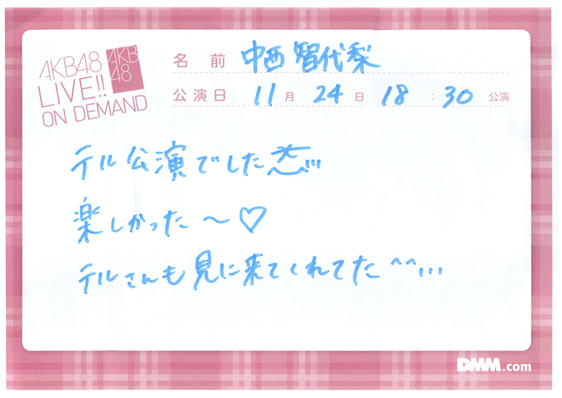 AKB48
LIVE!!
ON DEMAND
AKB
48
名前 中西智代梨
公演日 11月24日 18:30公演
テル公演でした
楽しかった〜♡
テルさんも見に来てくれてた^^...
DMM.com